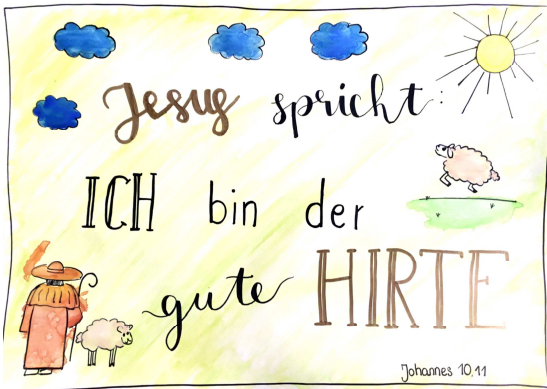 Jesus spricht:
ICH bin der
gute HIRTE
Johannes 10,11